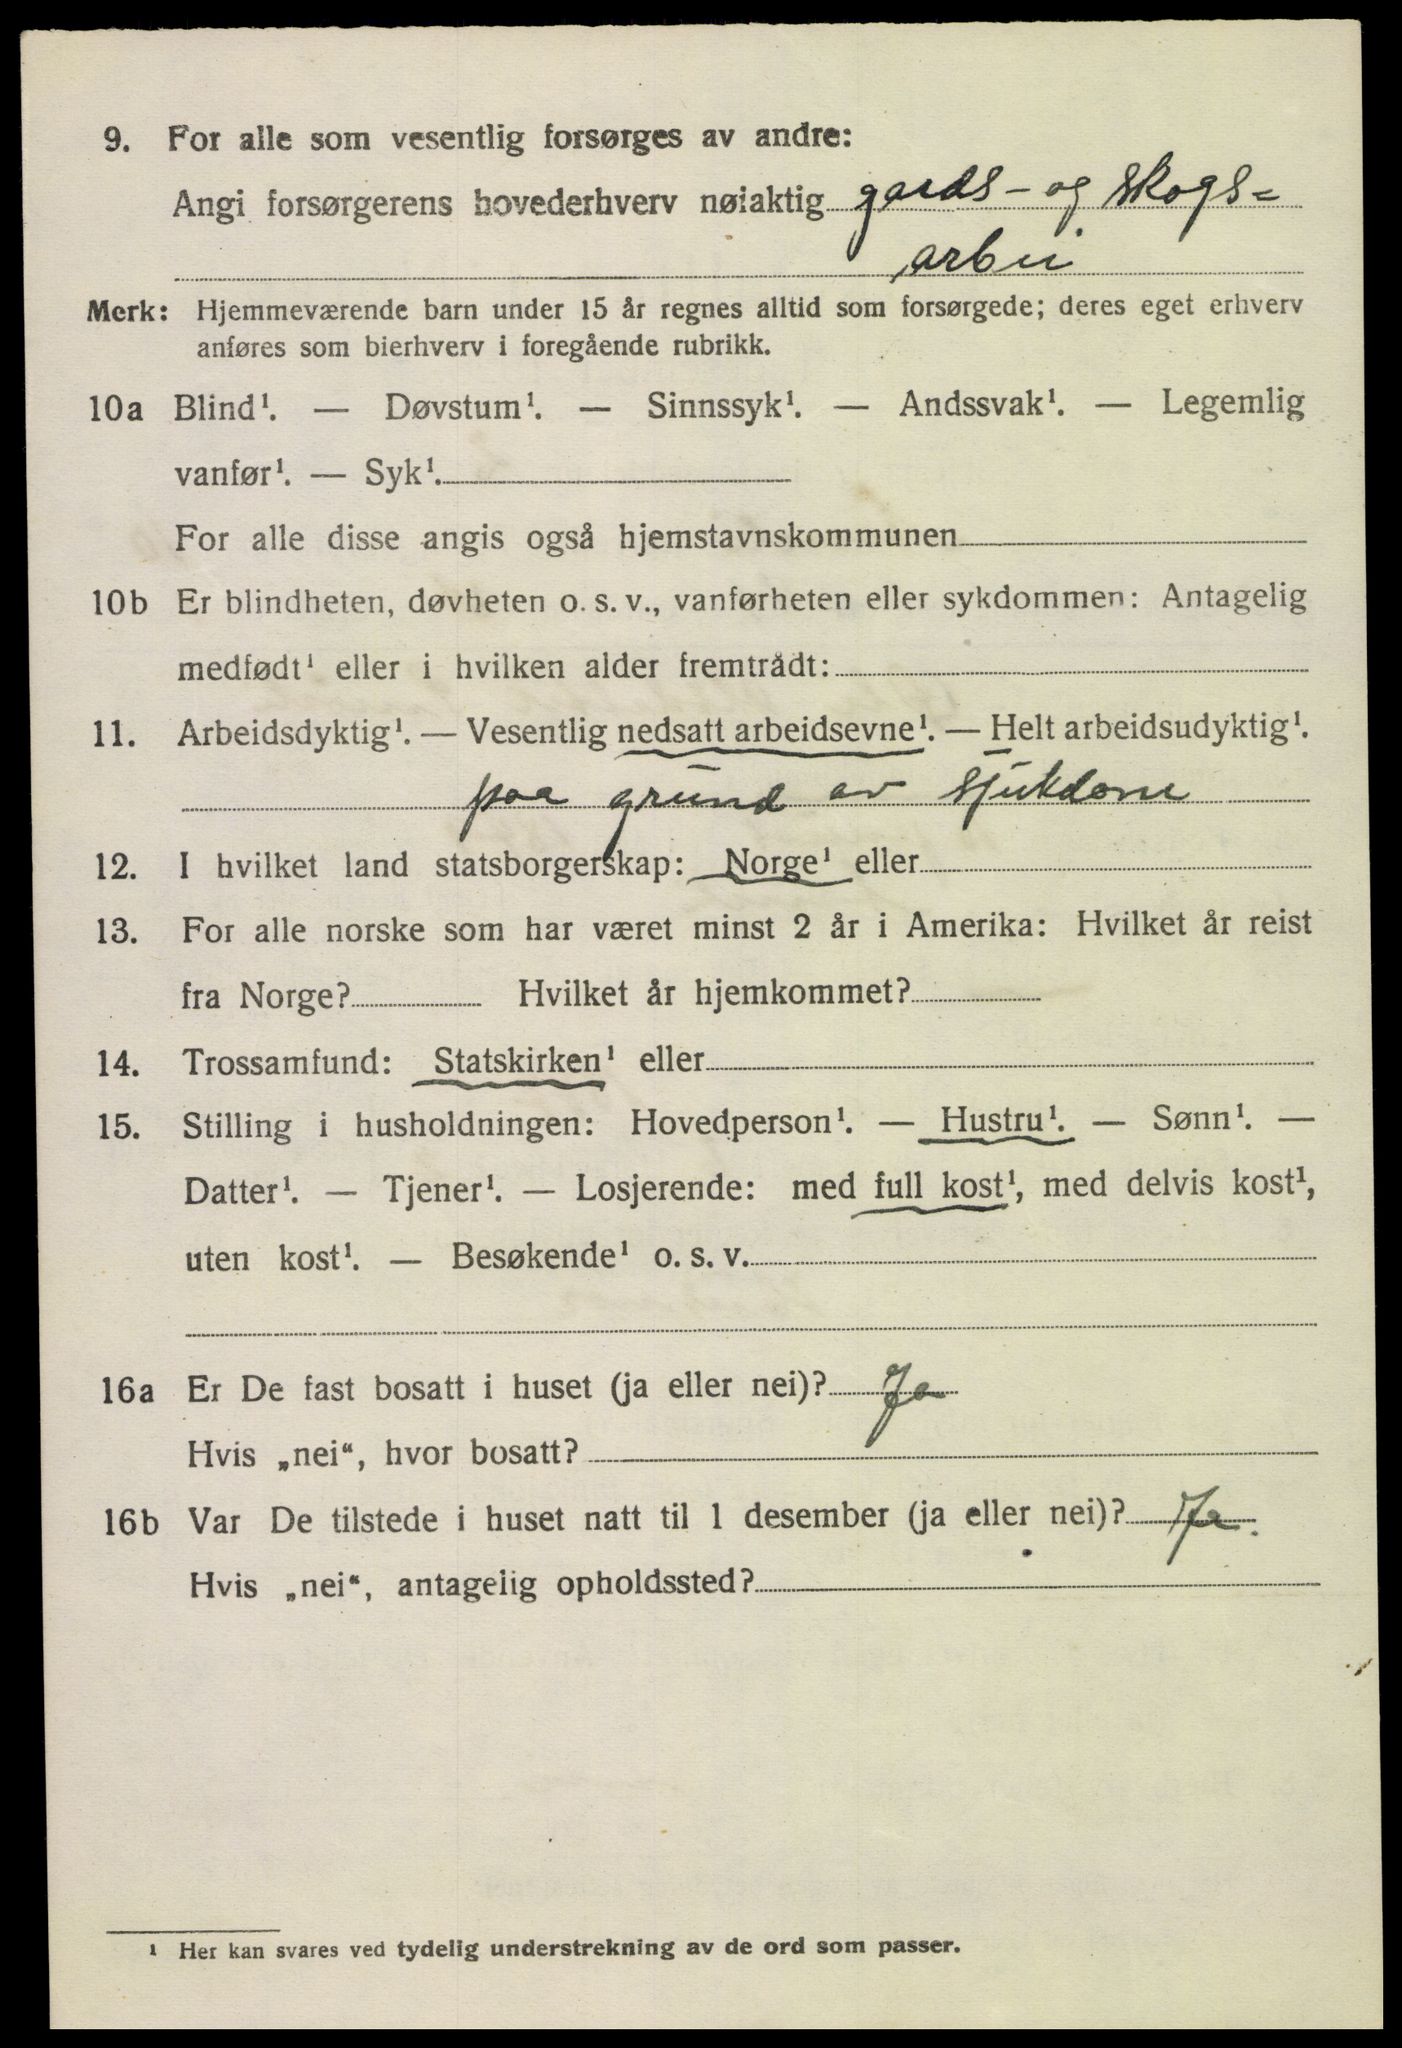 9. For alle som vesentlig forsørges av andre:
Angi forsørgerens hovederhverv nøiaktig gards- og skogs=
arbei
Merk: Hjemmeværende barn under 15 år regnes alltid som forsørgede; deres eget erhverv
anføres som bierhverv i foregående rubrikk.
10a Blind¹. — Døvstum¹. — Sinnssyk¹. — Andssvak¹. — Legemlig
vanfør¹. — Syk¹.
For alle disse angis også hjemstavnskommunen
10b Er blindheten, døvheten o. s. v., vanførheten eller sykdommen: Antagelig
medfødt¹ eller i hvilken alder fremtrådt:
11. Arbeidsdyktig¹. — Vesentlig nedsatt arbeidsevne¹. — Helt arbeidsudyktig¹.
paa grund av sjukdom
12. I hvilket land statsborgerskap: Norge¹ eller
13. For alle norske som har været minst 2 år i Amerika: Hvilket år reist
fra Norge? Hvilket år hjemkommet?
14. Trossamfund: Statskirken¹ eller
15. Stilling i husholdningen: Hovedperson¹. — Hustru¹. — Sønn¹. —
Datter¹. — Tjener¹. — Losjerende: med full kost¹, med delvis kost¹,
uten kost¹. — Besøkende¹ o. s. v.
16a Er De fast bosatt i huset (ja eller nei)? Ja
Hvis „nei“, hvor bosatt?
16b Var De tilstede i huset natt til 1 desember (ja eller nei)? Ja.
Hvis „nei“, antagelig opholdssted?
¹ Her kan svares ved tydelig understrekning av de ord som passer.